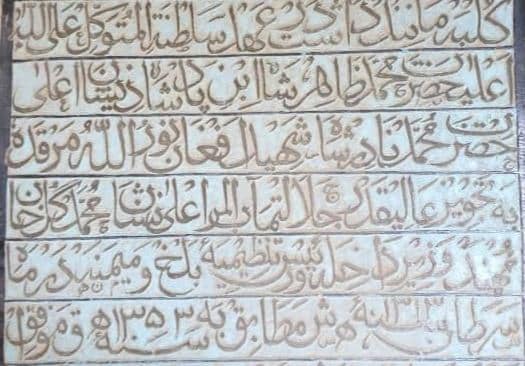 کلبه مانند داشت در عهد سلطنة المتوکل علی الله
اعلیحضرت محمد ظاهر شاه ابن پادشاه ذیشان اعلی
حضرت محمد نادر شاه شهید افغان نور الله مرقده
به تجویز عالیقدر جلالتمآب والا اعلی نشان محمد گل خان
مهمند وزیر داخله و رئیس تنظیمیه بلخ و میمنه در ماه
سرطان ۱۳۱۳ نه هش مطابق به ۱۳۵۳ سنه ه ق موفق